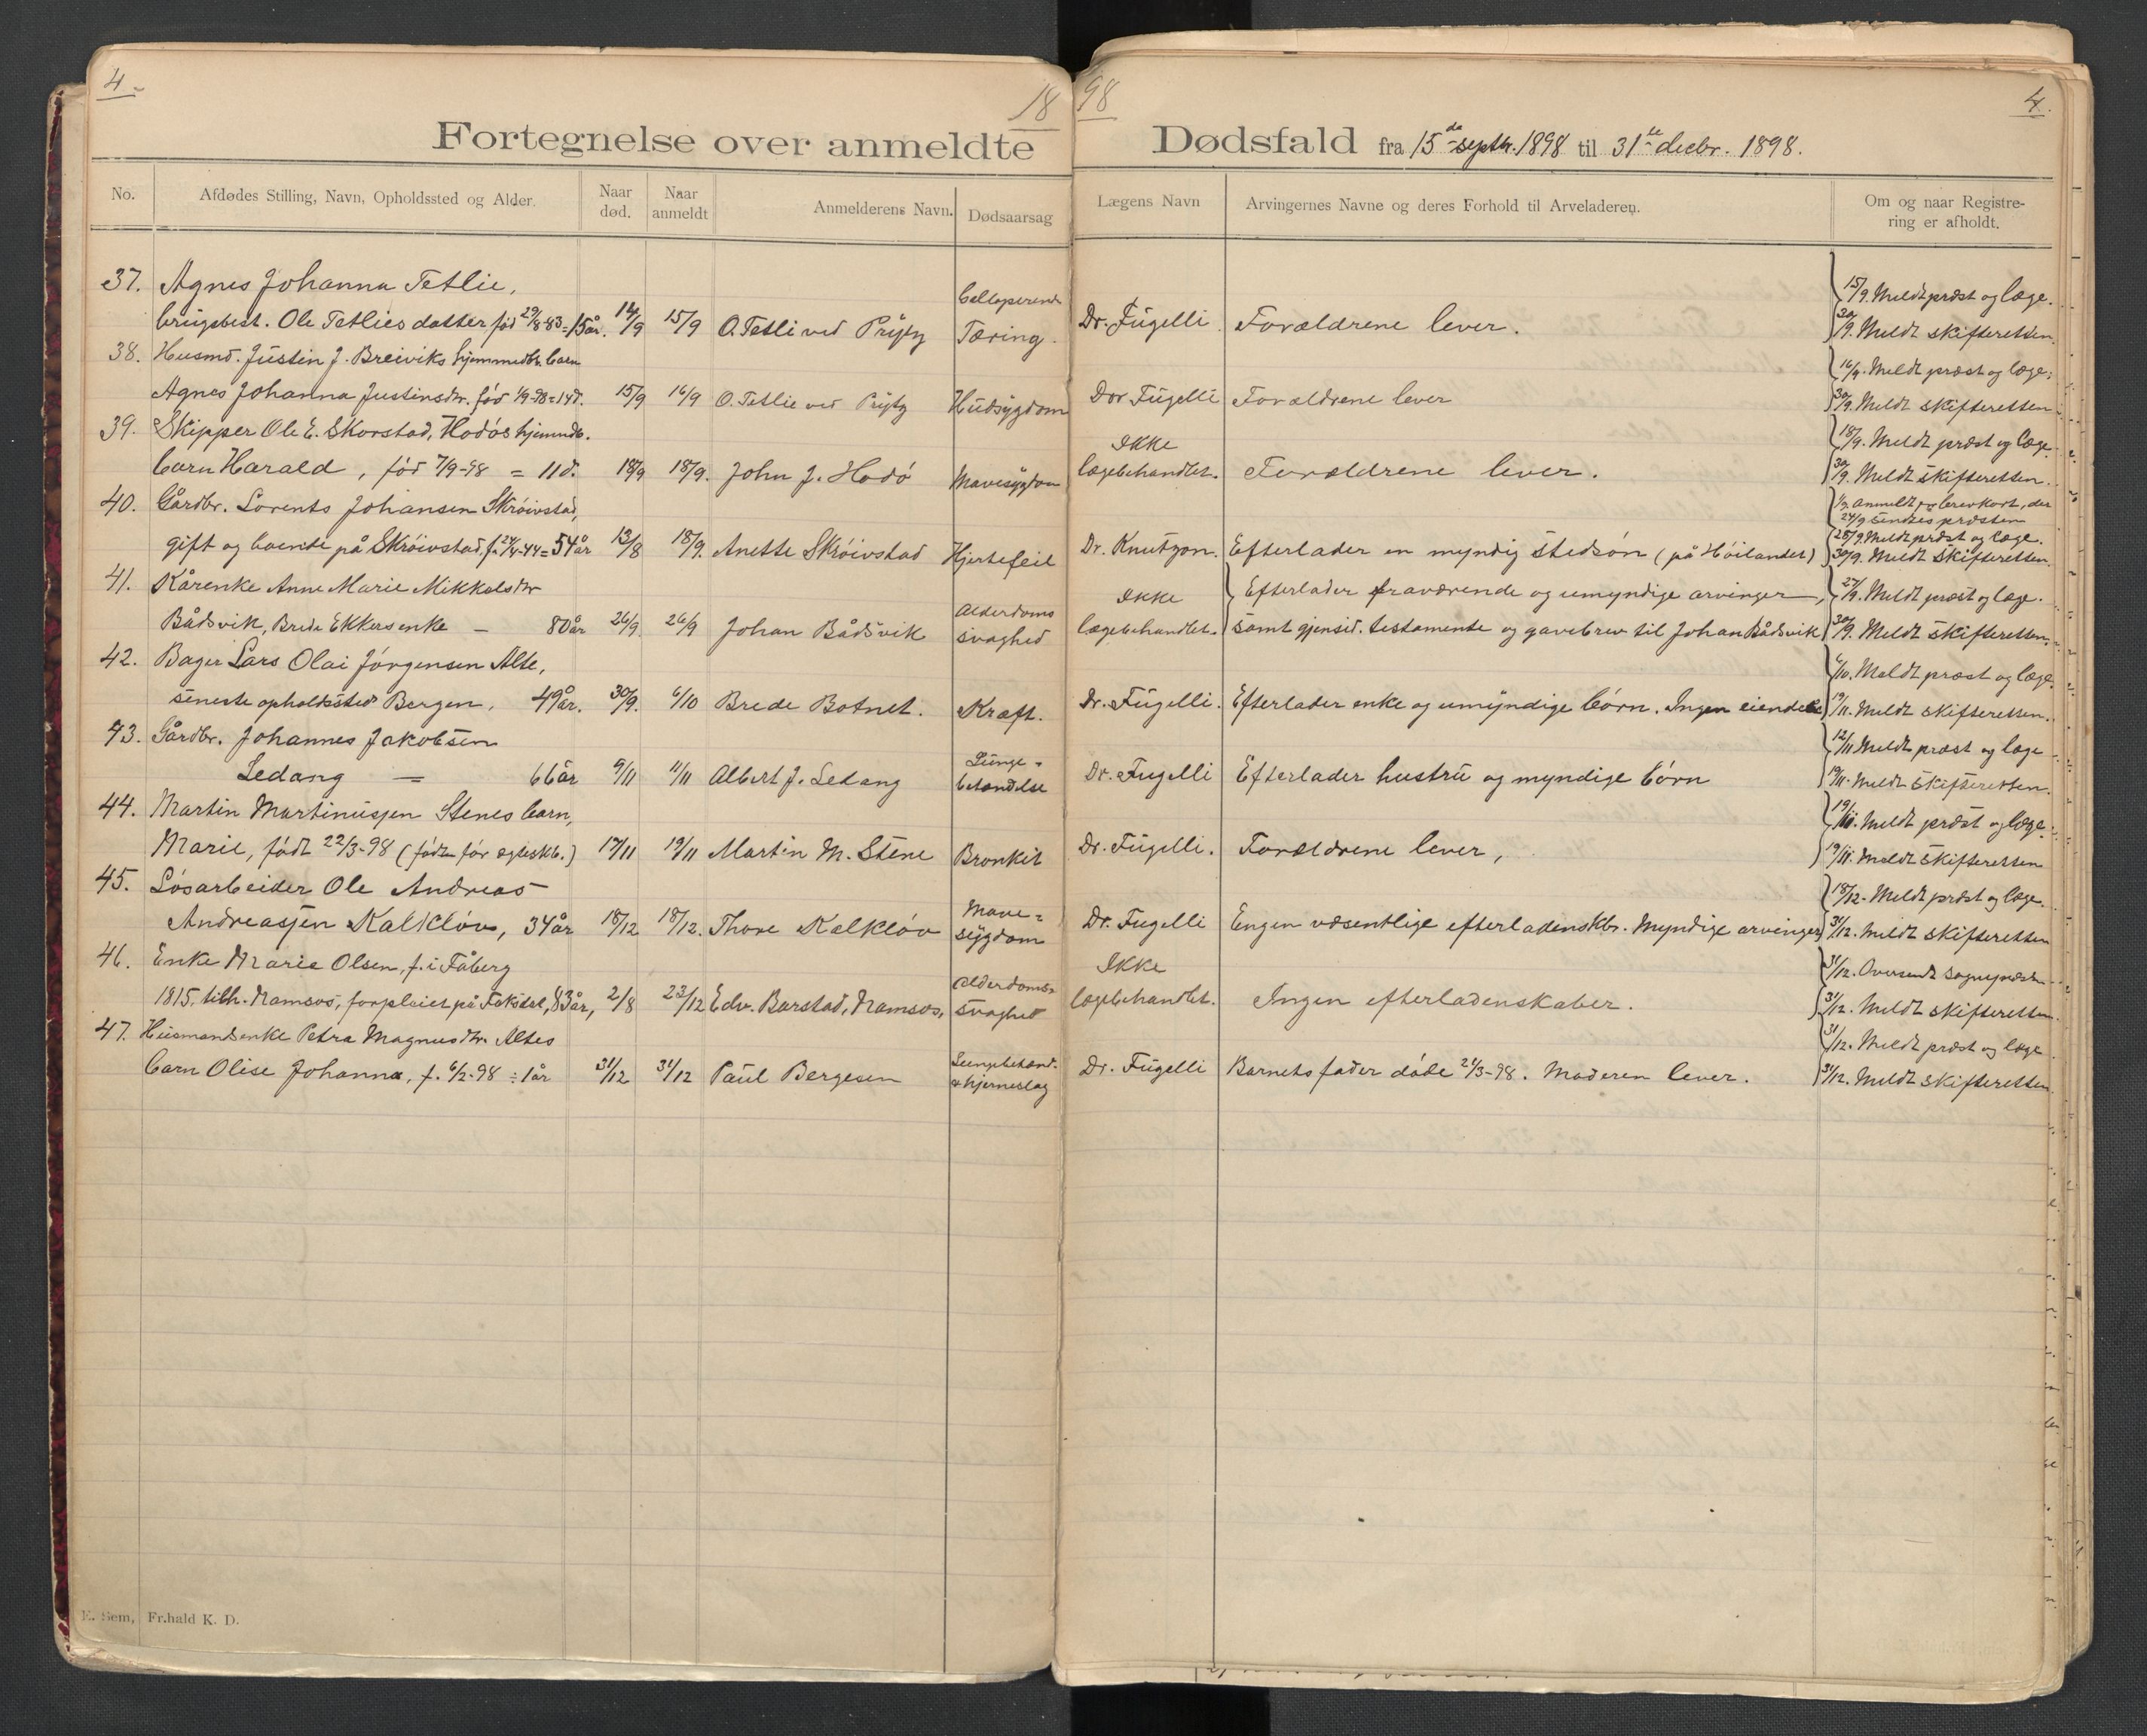 4.
18
98
4.
Fortegnelse over anmeldte Dødsfald fra 15de septbr. 1898 til 31te decbr. 1898.
No. Afdødes Stilling, Navn, Opholdssted og Alder. Naar død. Naar anmeldt Anmelderens Navn. Dødsaarsag Lægens Navn Arvingernes Navne og deres Forhold til Arveladeren. Om og naar Registrering er afholdt.
37. Agnes Johanna Tetlie, 15/9. Meldt præst og læge.
brugsbest. Ole Tetlies datter, fød 29/8-83 = 15 år. 14/9 15/9 O. Tetli ved Prÿtz Tæring. Dr. Fügelli Forældrene lever. 30/9. Meldt skifteretten.
38. Husmd. Justin J. Breiviks hjemmedbt. barn 16/9. Meldt præst og læge.
Agnes Johanna Justinsdtr. fød 1/9-98 = 14 d. 15/9 16/9 O. Tetlie ved Prÿtz Hudsÿgdom Dor Fügelli Forældrene lever 30/9. Meldt skifteretten.
39. Skipper Ole E. Skorstad, Hodøs hjemmdb. Ikke 18/9. Meldt præst og læge.
barn Harald, fød 7/9-98 = 11 d. 18/9 18/9. John J. Hodø Mavesÿgdom lægebehandlet. Forældrene lever. 30/9. Meldt skifteretten.
40. Gårdbr. Lorents Johansen Skrøivstad, 1/9 anmeldt pr brevkort, der
24/9 sendtes præsten
28/9. Meldt præst og læge.
gift og boende på Skrøivstad, f. 24/4-44 = 54 år 13/8 18/9. Anette Skrøivstad Hjertefeil Dr. Knutzon. Efterlader en myndig stedsøn (på Høilandet) 30/9. Meldt skifteretten.
41. Kårenke Anne Marie Mikkelsdtr Alderdoms Ikke Efterlader fraværende og umyndige arvinger, 27/9. Meldt præst og læge.
Bådsvik, Brede Ekkers enke – 80 år 26/9 26/9 Johan Bådsvik svaghed lægebehandlet. samt gjensid. testamente og gavebrev til Johan Bådsvik 30/9. Meldt skifteretten.
42. Bager Lars Olai Jørgensen Alte, 6/10. Meldt præst og læge.
seneste opholdssted Bergen, 49 år. 30/9. 6/10 Brede Botnet. Kræft. Dr. Fügelli. Efterlader enke og umÿndige børn. Ingen eiendele 19/11. Meldt skifteretten.
43. Gårdbr. Johannes Jakobsen Lunge- 12/11 Meldt præst og læge
Ledang – 66 år 9/11 11/11 Albert J. Ledang betændelse Dr. Fugelli Efterlader hustru og myndige børn 19/11. Meldt skifteretten.
44. Martin Martinusen Stenes barn, 19/11. Meldt præst og læge.
Marie, født 22/3-98 (født før ægteskb.) 17/11 19/11 Martin M. Stene Bronkit Dr. Fügelli. Forældrene lever, 19/11. Meldt skifteretten
45. Løsarbeider Ole Andreas Mave- 18/12. Meldt præst og læge.
Andreasen Kalkløv, 34 år 18/12 18/12. Thore Kalkløv sÿgdom Dr. Fugelli Engen væsentlige efterladenskbr. Myndige arvinger 31/12. Meldt skifteretten
46. Enke Marie Olsen, f. i Fåberg Alderdoms- Ikke 31/12. Oversendt sognepræsten
1815, tilh. Namsos, forpleiet på Fakstal, 83 år, 2/8 23/12 Edv. Barstad, Namsos, svaghed lægebehandlet. Ingen efterladenskaber. 31/12. Meldt skifteretten.
47. Husmandsenke Petra Magnusdtr. Altes Lungebetænd. 31/12. Meldt præst og læge
barn Olise Johanna, f. 6/2-98 ÷ 1 år 31/12 31/12 Paul Bergesen & hjerneslag Dr. Fügelli Barnets fader døde 21/3-98. Moderen lever. 31/12. Meldt skifteretten.
E. Sem, Fr.hald K. D.